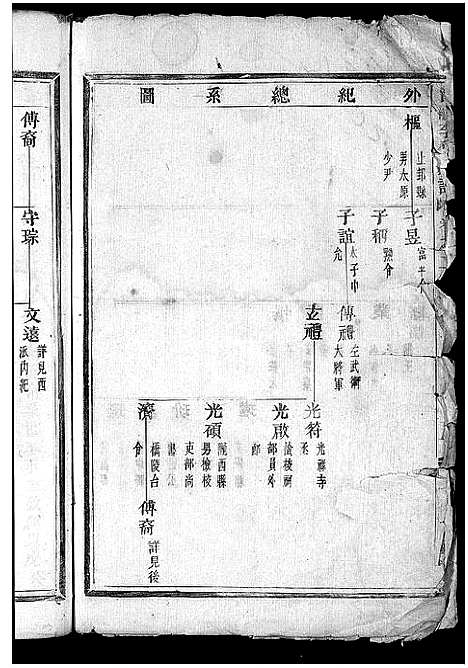 外紀總系圖
樞
上邽縣
男太原
少尹
子昱
子稱
縣令
子誼
太子中
允
傳禮
左武衛
大將軍
玄禮
光符
光祿寺
丞
光啟
檢校祠
部員外
郎
光碩
隴西縣
男檢校
吏部尚
濟
橋陵台
令
傳裔
詳見後
傳裔
守琮
文遠
詳見西
派內紀